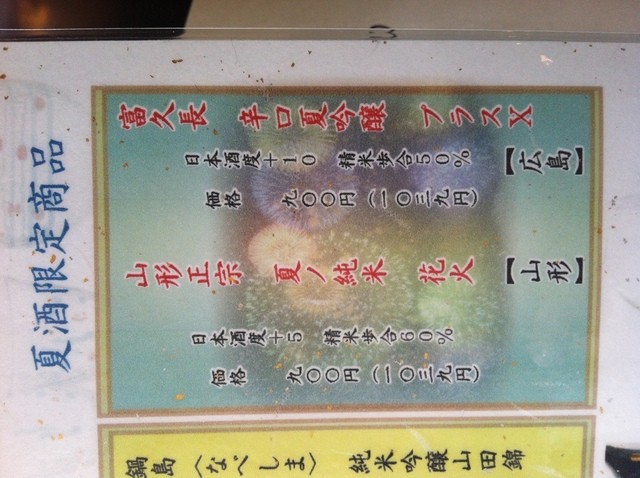 夏酒限定商品
富久長 辛口夏吟醸 プラスX 【広島】
日本酒度+10 精米歩合50%
価格 九〇〇円(一〇三九円)
山形正宗 夏ノ純米 花火 【山形】
日本酒度+5 精米歩合60%
価格 九〇〇円(一〇三九円)
鍋島〈なべしま〉 純米吟醸山田錦